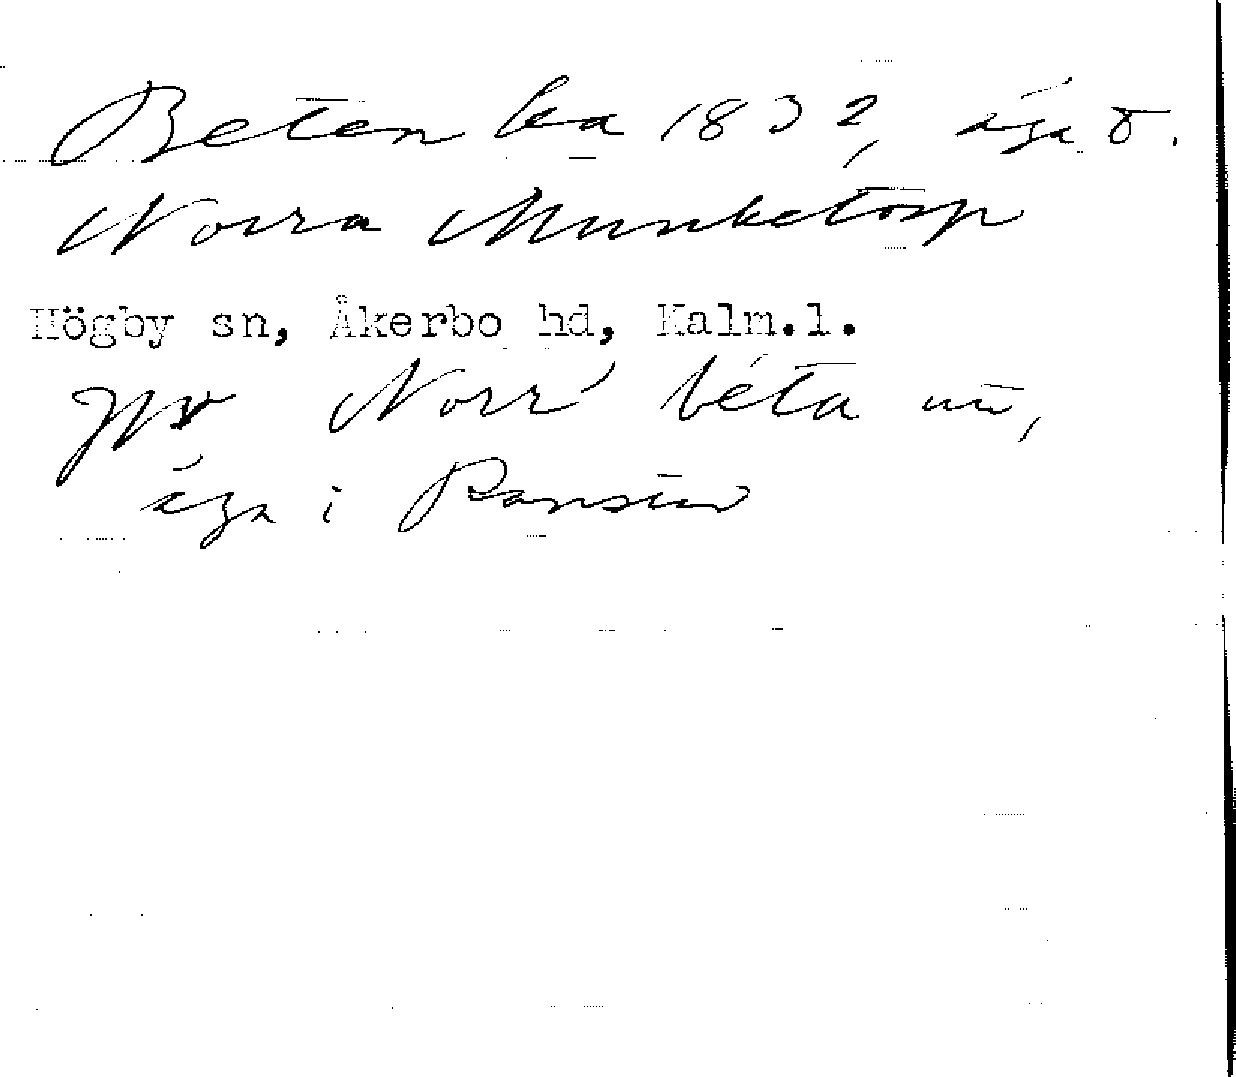 Beten ka 1832, äga t.
Norra Munketorp
Högby sn, Åkerbo hd, Kalm.l.
Jfr Norr béta
äga i